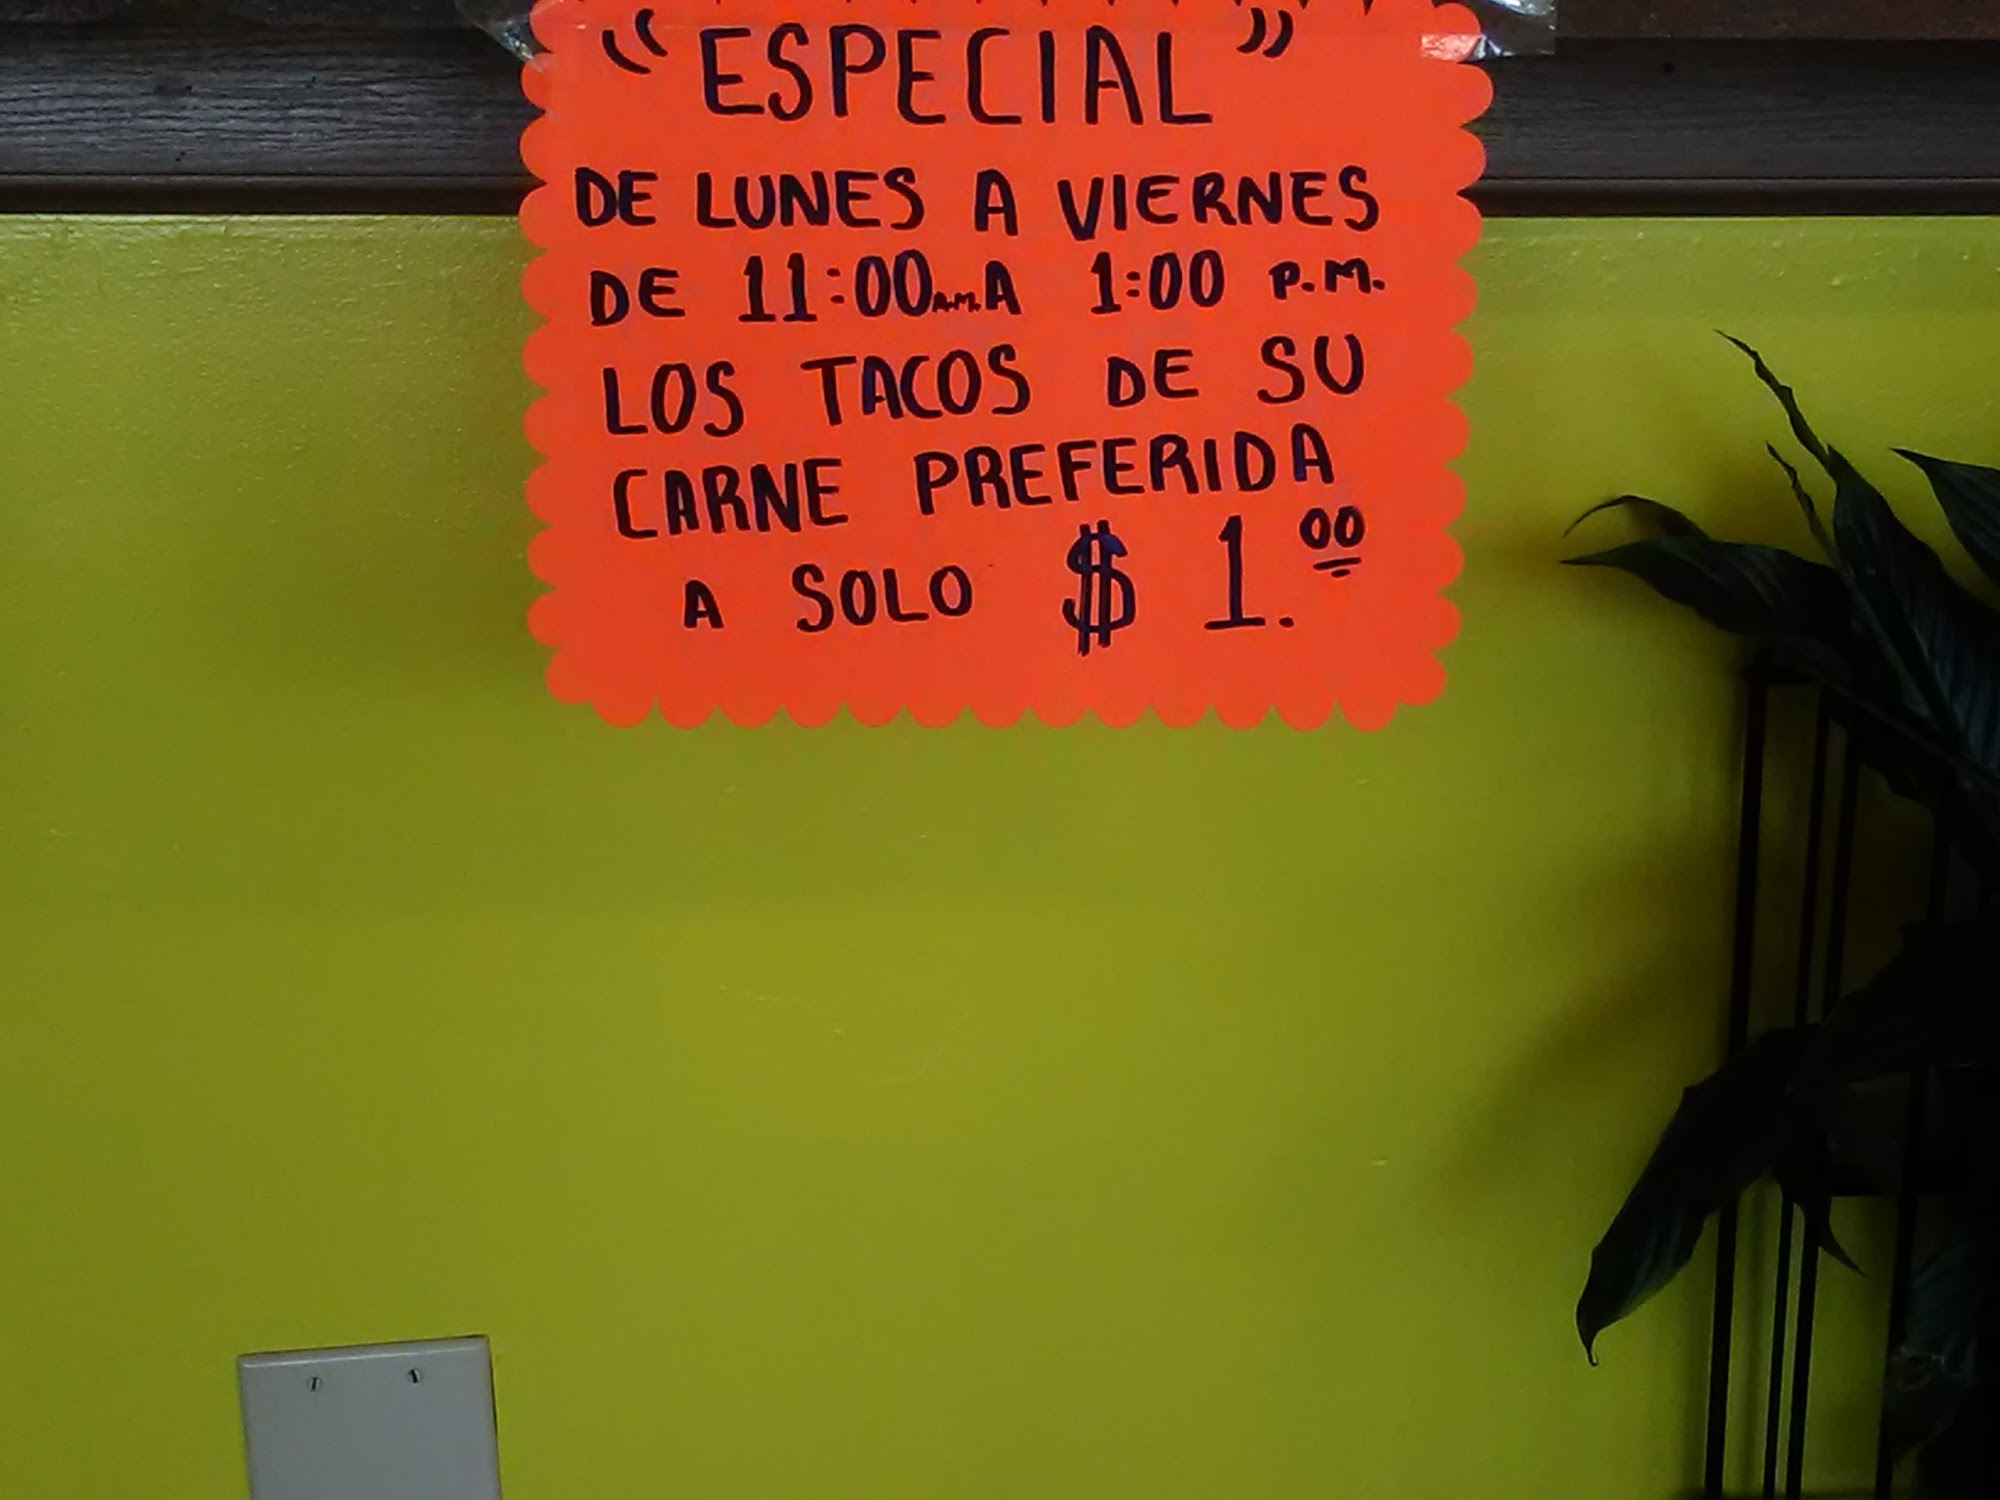 "ESPECIAL"
DE LUNES A VIERNES
DE 11:00 A.M. A 1:00 P.M.
LOS TACOS DE SU
CARNE PREFERIDA
A SOLO $ 1.00